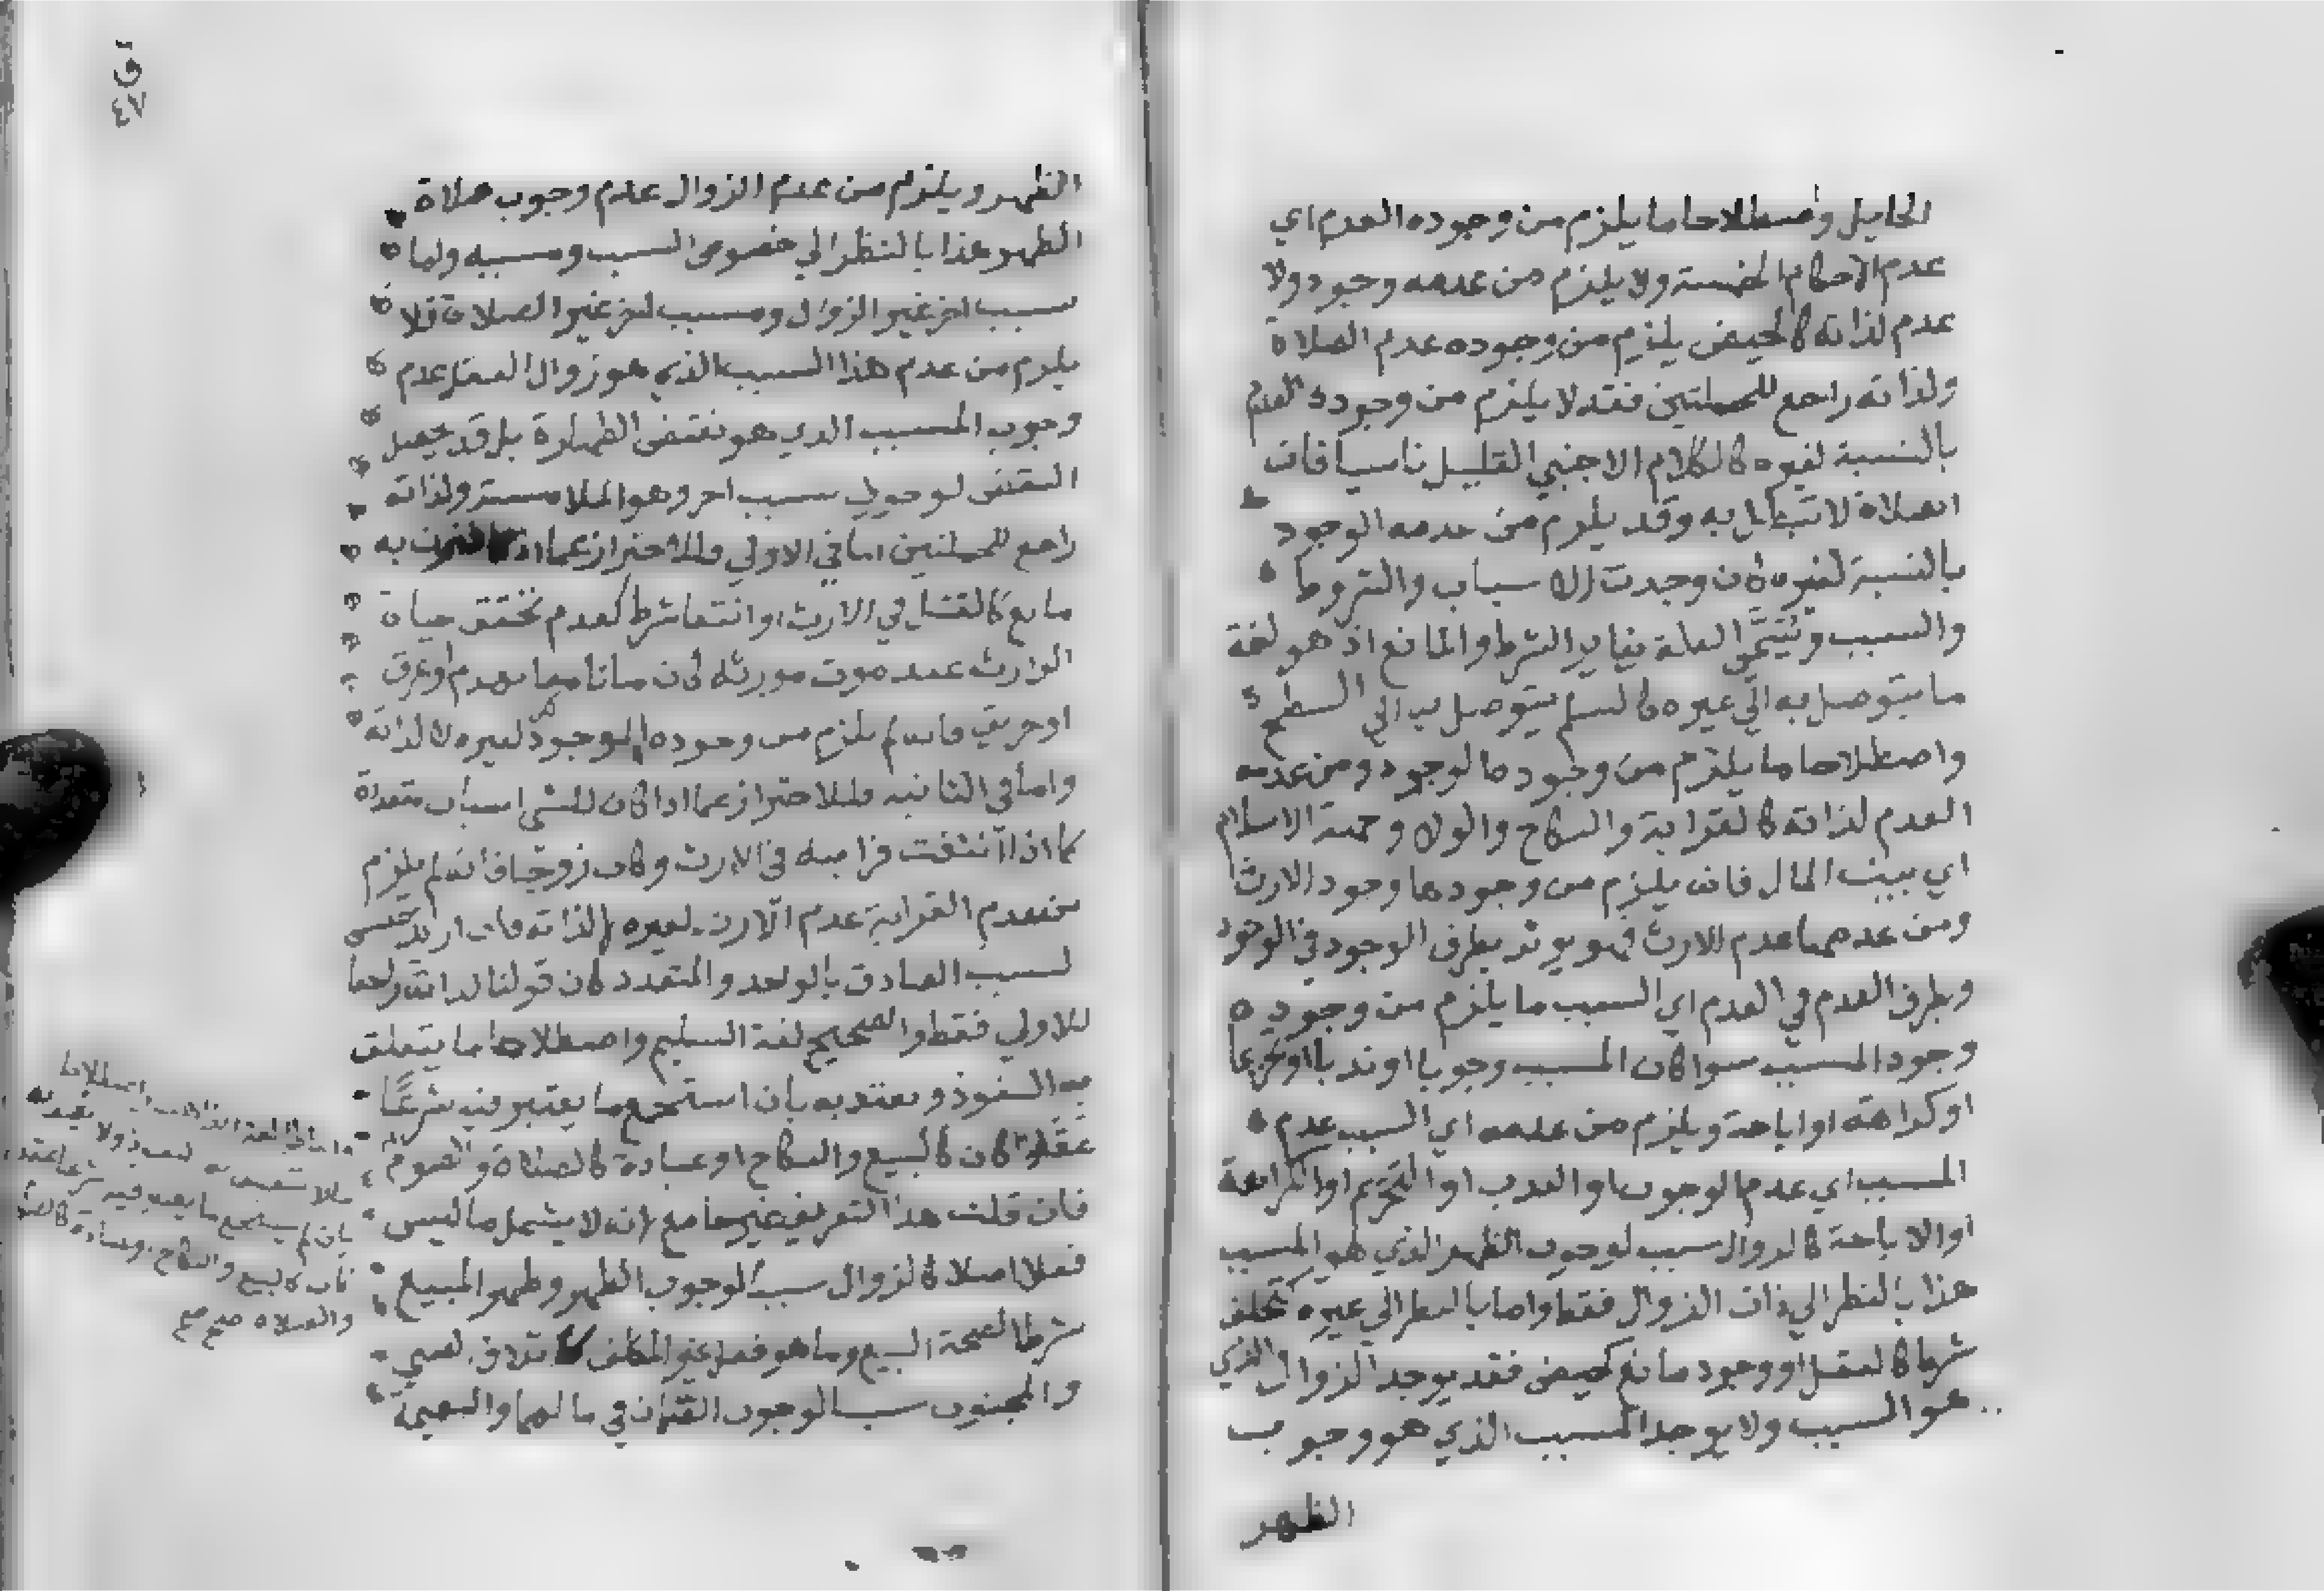 الحايل واصطلاحا ما يلزم من وجوده العدم اي
عدم الاحكام الخمسة ولا يلزم من عدمه وجود ولا
عدم لذاته كالحيض يلزم من وجوده عدم الصلاة
ولذاته راجع للجملتين فقد لا يلزم من وجوده العدم
بالنسبة لغيره كالكلام الاجنبي القليل ناسيا فان
الصلاة لا تبطل به وقد يلزم من عدمه الوجود
بالنسبة لغيره كان وجدت الاسباب والشروط
والسبب العلة يغاير الشرط والمانع اذ هو لغة
ما يتوصل به الي غيره كالسلم يتوصل به الي السطح
واصطلاحا ما يلزم من وجوده الوجود ومن عدمه
العدم لذاته كالقرابة والنكاح والولا وجهة الاسلام
اي بيت المال فانه يلزم من وجودها وجود الارث
ومن عدمها عدم الارث فهو يوثر بطرف الوجود في الوجود
وبطرف العدم في العدم اي السبب ما يلزم من وجوده
وجود المسبب سوا كان المسبب وجوبا او ندبا او تحريما
او كراهة او اباحة ويلزم من عدمه اي السبب عدم
المسبب اي عدم الوجوب او الندب او التحريم او الكراهة
او الاباحة كالزوال سبب لوجوب الظهر الذي هو المسبب
هذا بالنظر الي ذات الزوال فقط واما بالنظر الي غيره كتخلف
شرط كالعقل او وجود مانع كحيض فقد يوجد الزوال الذي
هو السبب ولا يوجد المسبب الذي هو وجوب
الظهر
ق ٤٧
الظهر ويلزم من عدم الزوال عدم وجوب صلاة
الظهر هذا بالنظر الي خصوص السبب ومسببه ولها
سبب اخر غير الزوال ومسبب اخر غير الصلاة فلا
يلزم من عدم هذا السبب الذي هو زوال العقل عدم
وجوب المسبب الذي هو نقض الطهارة بل قد يحصل
النقض لوجود سبب اخر وهو الملامسة ولذاته
راجع للجملتين اما في الاولي فللاحتراز عما اذا اقترن به
مانع كالقتل في الارث او انتفا شرط كعدم تحقق حياة
الوارث عند موت مورثه كان ماتا معا بهدم او غرق
او حريق فانه لم يلزم من وجوده الوجود لغيره لا لذاته
واما في الثانية فللاحتراز عما اذا كان للشي اسباب متعددة
كما اذا انتفت قرابته في الارث وكان زوجا فانه لم يلزم
من عدم القرابة عدم الارث لغيره لا لذاته فان اريد جنس
السبب الصادق بالواحد والمتعدد كان قولنا لذاته راجعا
للاولي فقط والصحيح لغة السليم واصطلاحا ما يتعلق
به النفوذ ويعتد به بان استجمع ما يعتبر فيه شرعا
عقدا كان كالبيع والنكاح او عبادة كالصلاة والصوم
فان قلت هذا التعريف غير جامع لانه لا يشمل ما ليس
فعلا اصلا كالزوال سببا لوجوب الظهر وطهر المبيع
شرطا لصحة البيع وما هو فعل غير المكلف كاتلاف الصبي
والمجنون سببا لوجوب الضمان في مالهما والبهيمة
الذاهب واصطلاحا
ما لا يتعلق به النفوذ ولا يعتد به
بان لم يستجمع ما يعتبر فيه شرعا عقدا
كان كالبيع والنكاح او عبادة كالصوم
والصلاة صح صح